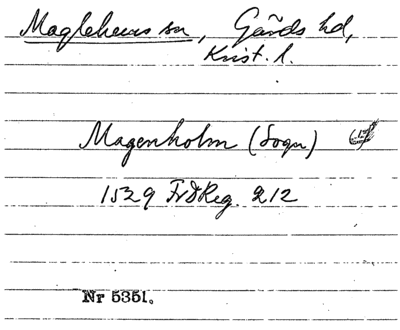 Maglehems sn, Gärds hd,
Krist. l.
Magenholm (Sogn)
1529 FrdReg. 212
Nr 5351.